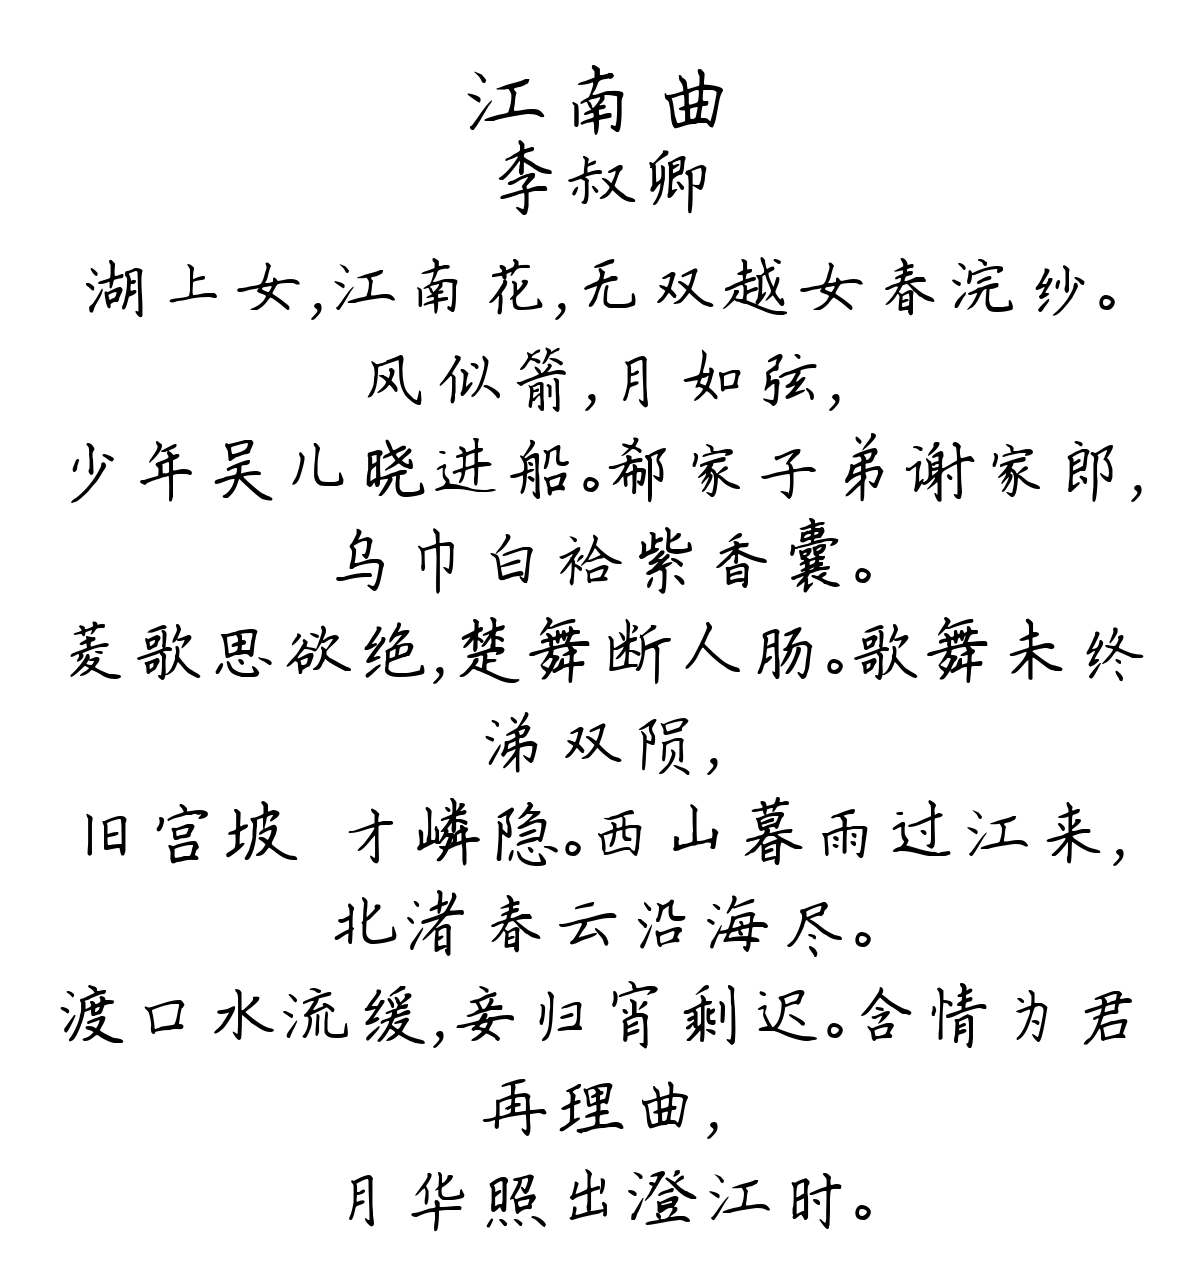 江南曲
李叔卿
湖上女,江南花,无双越女春浣纱。
风似箭,月如弦,
少年吴儿晓进船。郗家子弟谢家郎,
乌巾白袷紫香囊。
菱歌思欲绝,楚舞断人肠。歌舞未终
涕双陨,
旧宫坡 才嶙隐。西山暮雨过江来,
北渚春云沿海尽。
渡口水流缓,妾归宵剩迟。含情为君
再理曲,
月华照出澄江时。